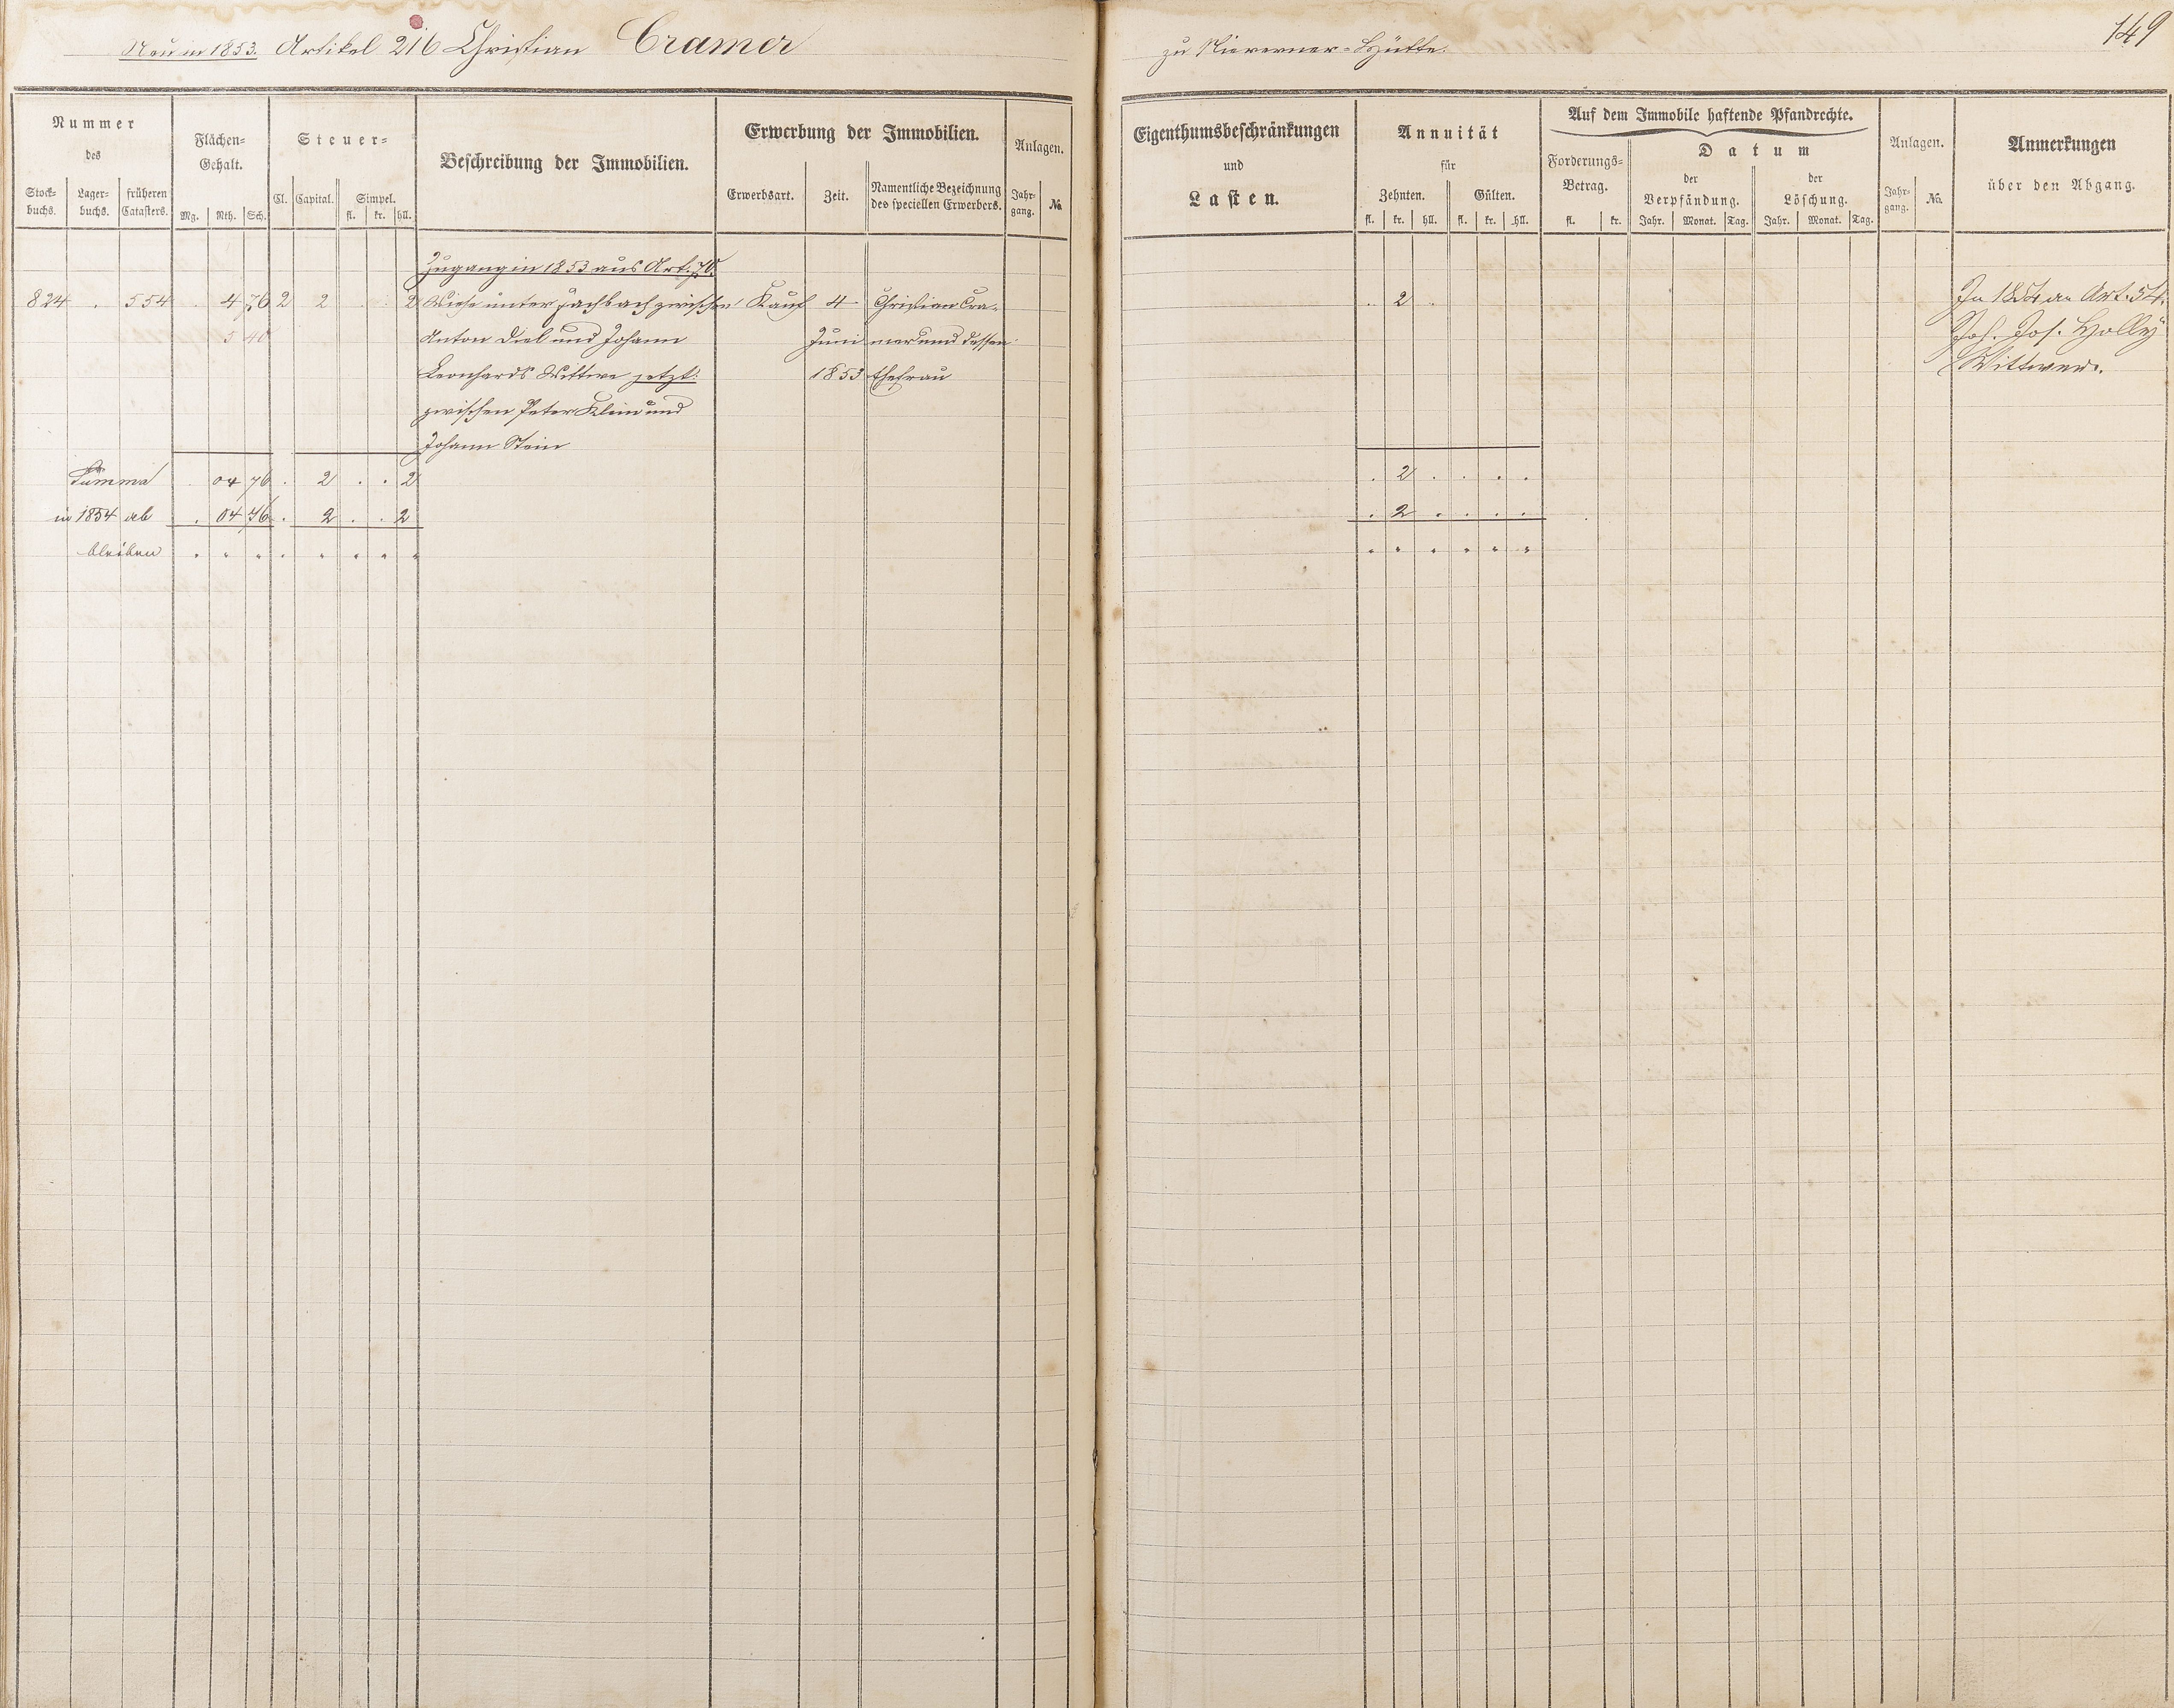 Neu in 1853. Artikel 216 Christian Cramer
zu Nieverner-Hütte.
149
Nummer
des
Stock-
buchs.
Lager-
buchs.
früheren
Catasters.
Flächen-
Gehalt.
Mg. Rth. Sch.
Steuer-
Cl. Capital. Simpel.
fl. kr. hll.
Beschreibung der Immobilien.
Erwerbung der Immobilien.
Erwerbsart. Zeit. Namentliche Bezeichnung
des speciellen Erwerbers.
Anlagen.
Jahr-
gang.
№
Eigenthumsbeschränkungen
und
Lasten.
Annuität
für
Zehnten. Gülten.
fl. kr. hll. fl. kr. hll.
Auf dem Immobile haftende Pfandrechte.
Forderungs-
Betrag.
fl. kr.
Datum
der
Verpfändung.
Jahr. Monat. Tag.
der
Löschung.
Jahr. Monat. Tag.
Anlagen.
Jahr-
gang.
No.
Anmerkungen
über den Abgang.
Zugang in 1853 aus Art. 70.
824 . 554 . 4 76 2 2 . . 2 Wiese unter Fachbach zwischen Kauf 4 Christian Cra- . 2 . In 1854 an Art. 54.
5 40 Anton Diel und Johann Juni mer und dessen Joh. Jos. Holly
Leonhards Wittwe jetzt: 1853 Ehefrau Wittwer.
zwischen Peter Klein und
Johann Stein
Summa . 04 76 . 2 . . 2 . 2 . . . .
in 1854 ab . 04 76 . 2 . . 2 . 2 . . . .
bleiben . " " . " " " " " " " " " "